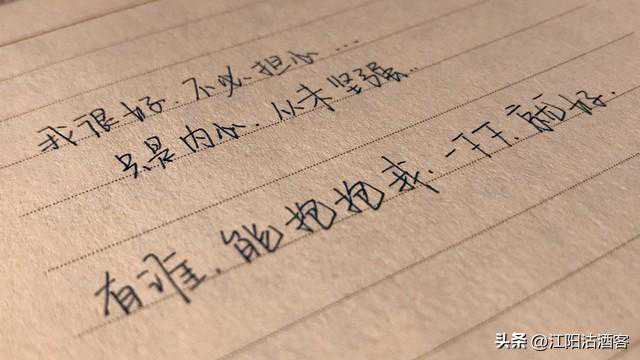 我很好.不必担心...
只是内心.从未坚强..
有谁.能抱抱我.一下下.就好.
头条 @江阳沽酒客